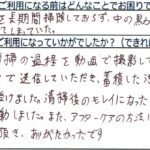 ご利用になる前はどんなことでお困り
を長期間掃除しておらず、中の黒カ
てしまっていた。
ご利用になっていかがでしたか？（できれ
掃の過程を動画で撮影して
で送信していただき、蓄積した汚
けました。清掃後のキレイになった
動しました。また、アフターケアの方法に
頂き、ありがたかったです